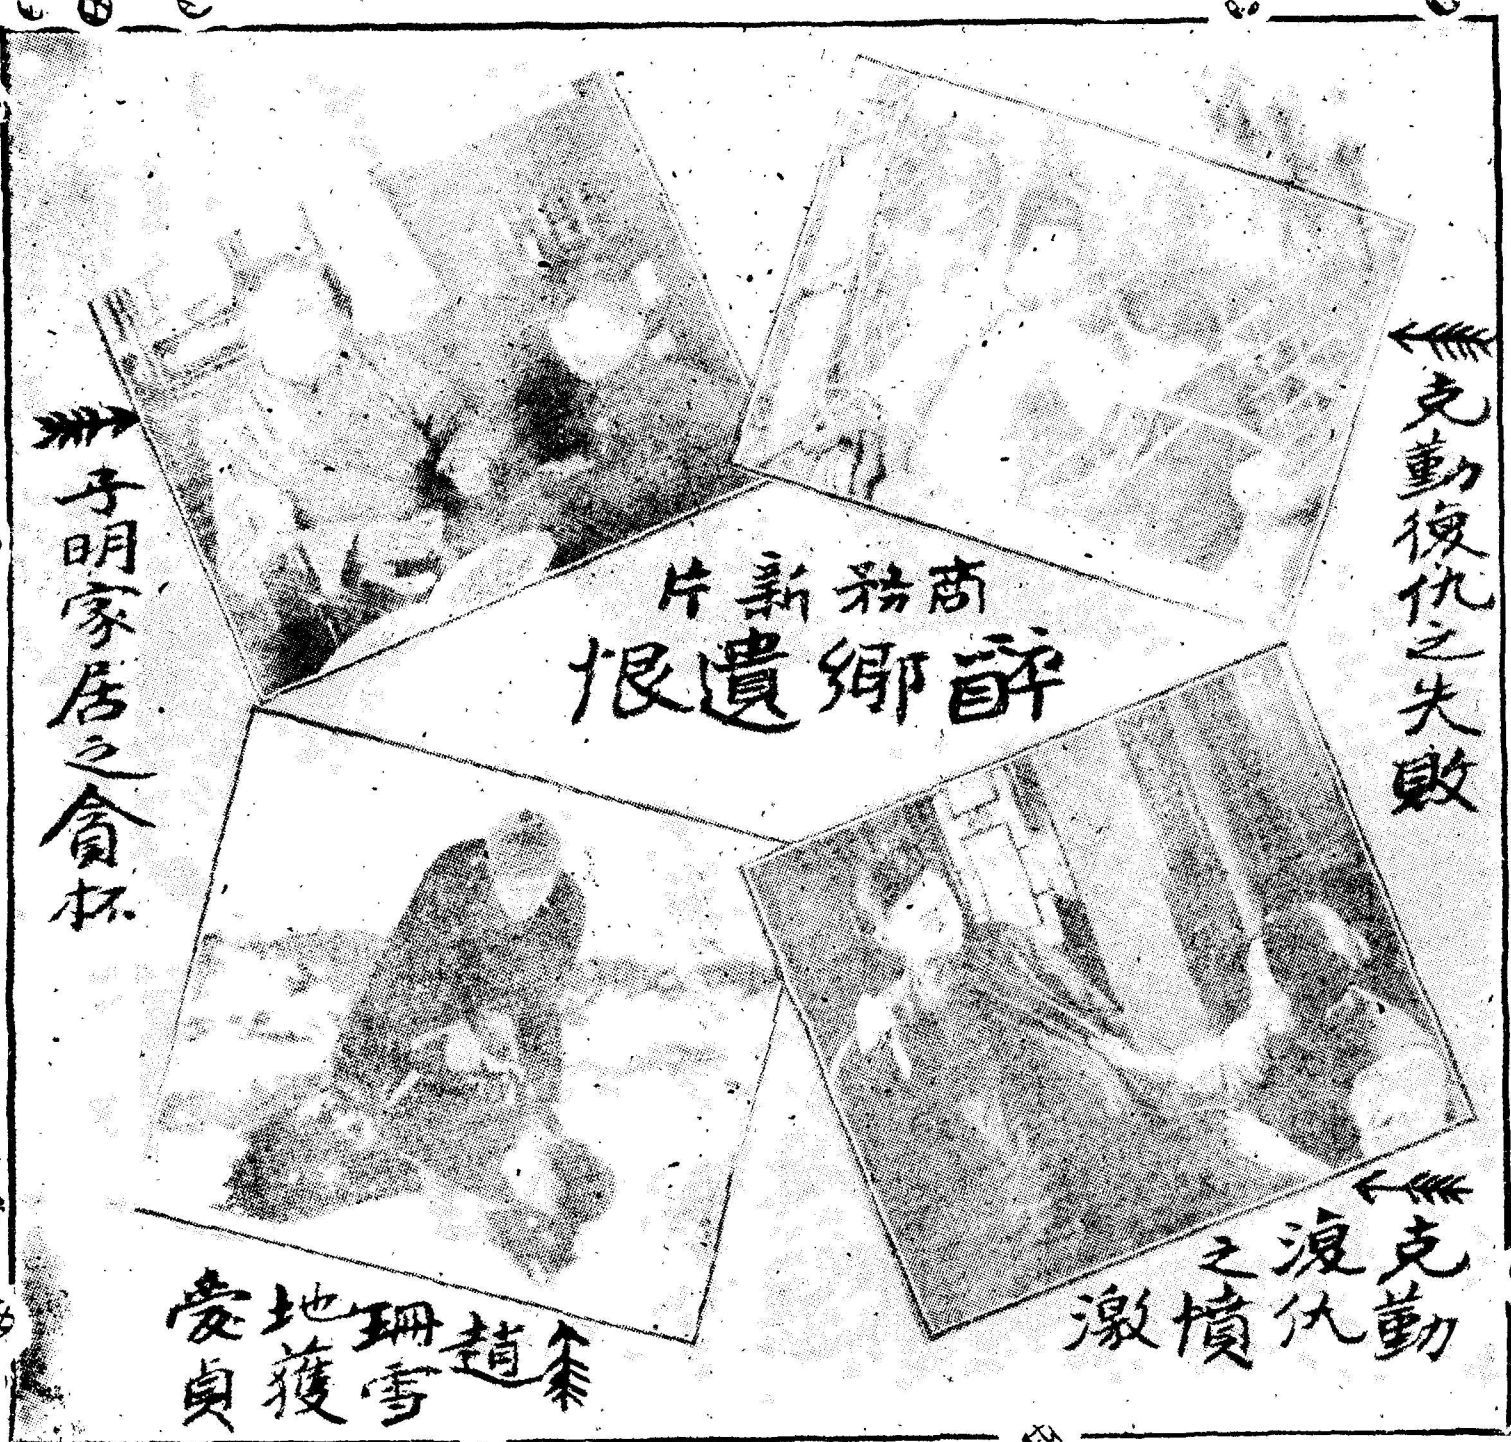 商務新片
醉鄉遺恨
克勤復仇之失敗
子明家居之貪杯
克勤
復仇
之憤
激
趙
珊雪
地獲
愛貞